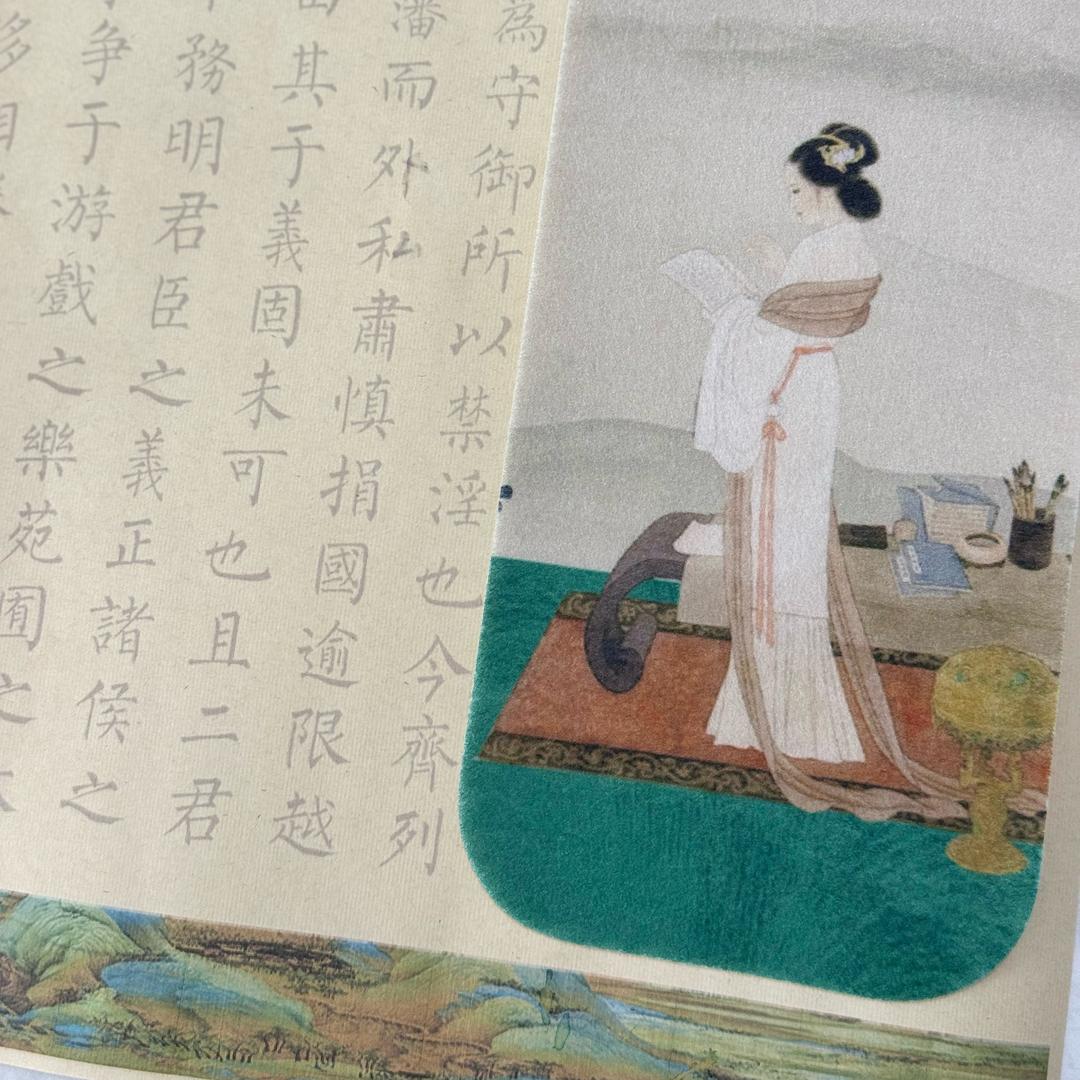 為守御所以禁淫也今齊列
潘而外私肅慎捐國逾限越
其于義固未可也且二君
務明君臣之義正諸侯之
争于游戲之樂苑囿之